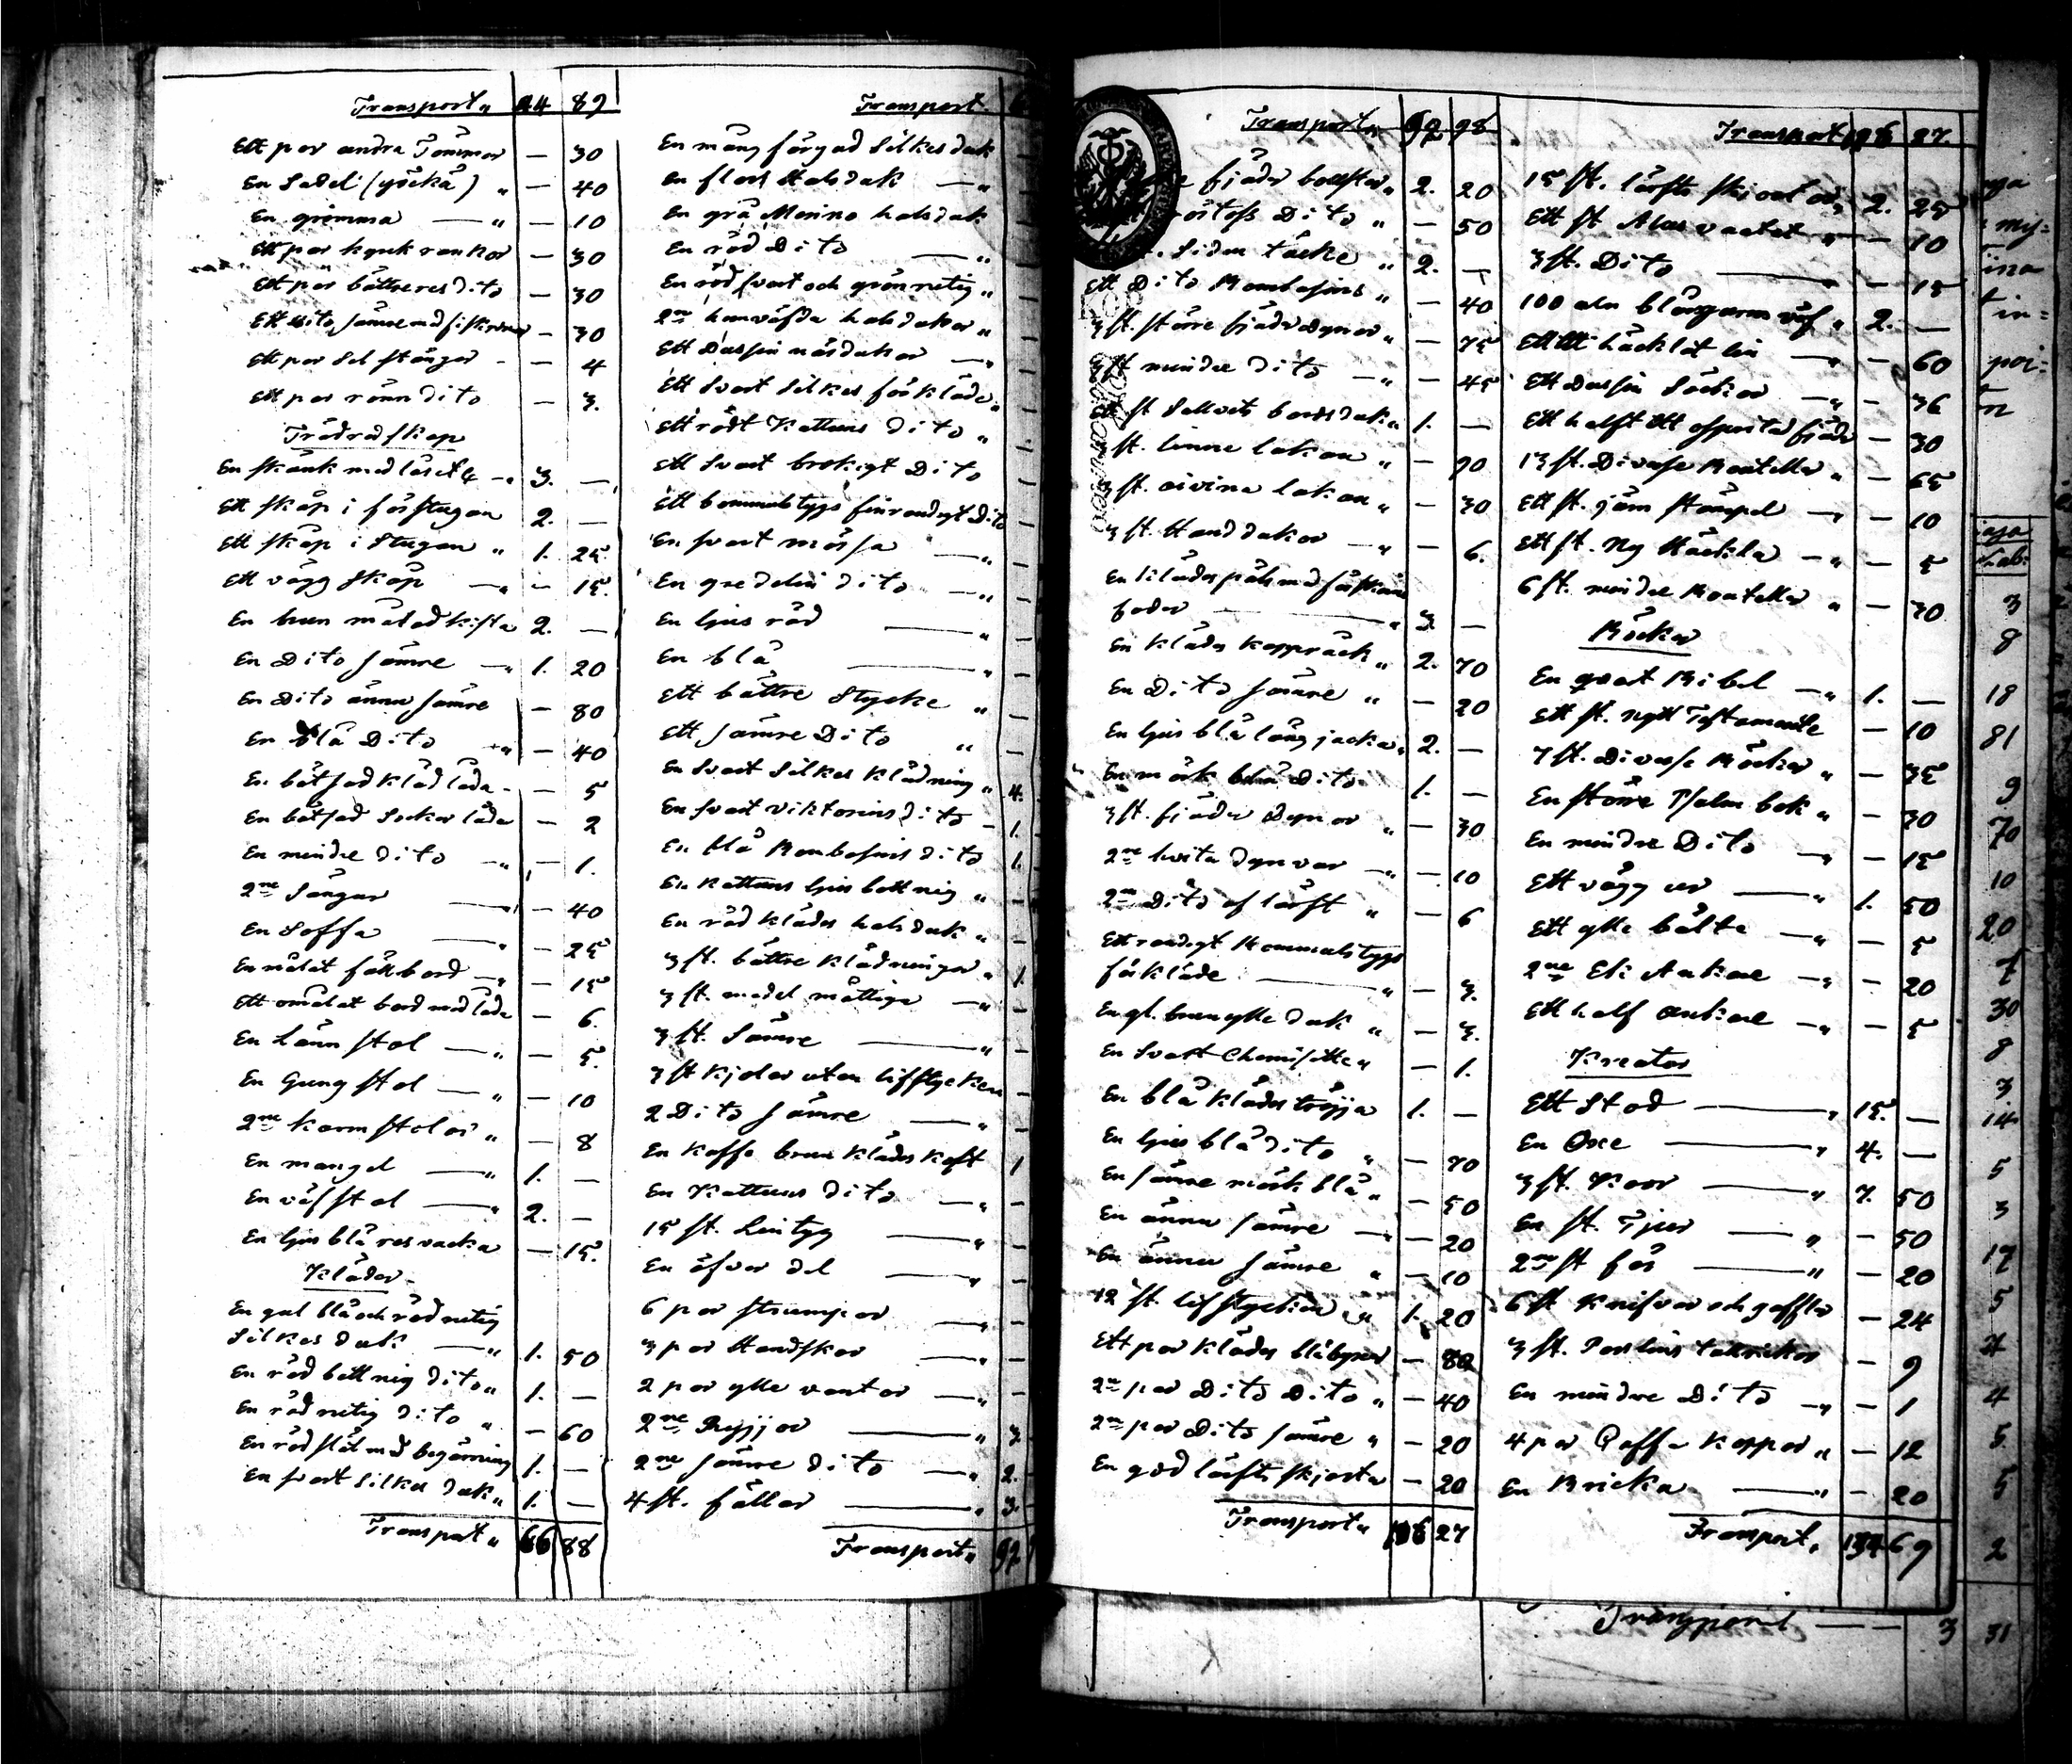 Transport " 44 89
Ett par andra Tömmar — 30
En Sadel (gåckå) " — 40
En grimma — " — 10
Ett par — 30
Ett par bättre res dito — 30
Ett dito sämre med — 30
Ett par Sel stänger - — 4
Ett par rönn dito — 3.
Trädredskap
En skänk med låset 4 — " 3. —
Ett skåp i förstugan 2. —
Ett skåp i Stugan " 1. 25
Ett vägg skåp — " — 15.
En brun målad kista 2. —
En Dito sämre — " 1. 20
En Dito ännu sämre — 80
En blå Dito " — 40
En låda - — 5
En Socker låda — 2
En mindre dito — " — 1.
2ne Sängar — " — 40
En Soffa — " — 25
En målat fällbord — " — 15
Ett omålat bord med låda — 6.
En Länn stol — " — 5.
En Gung stol — " — 10
2ne karm stolar " — 8
En mangel — " 1. —
En väfstol — " 2. —
En ljus blå res vacka — 15.
Kläder
En gul blå och röd rutig
Silkes duk — " 1. 50
En röd bottnig dito " 1. —
En röd rutig dito " — 60
En röd slät med 1. —
En svart silkes duk " 1. —
Transport " 66 88
Transport.
En mång färgad Silkes duk —
En flors Halsduk — "
En grå Merino halsduk —
En röd Dito — "
En röd svart och grön rutig "
2ne hemväfda halsdukar "
Ett Dussin näsdukar — "
Ett Svart Silkes förkläde "
Ett rödt Kattuns dito "
Ett Svart brokigt Dito
Ett bommulstygs finrandigt Dito
En svart mössa — "
En gredelin dito — "
En ljus röd — "
En blå — "
Ett bättre Stycke " —
Ett sämre Dito " —
En Svart Silkes klädning " 4.
En svart viktorins dito — 1.
En blå Bombasins dito 1.
En Kattuns ljus bottnig "
En röd klädes halsduk " —
3 st. bättre klädningar " 1.
3 st. medel måttiga — "
3 st. Sämre — " —
3 st kjolar utan lifstycken —
2 Dito sämre — " —
En kaffe brun klädes koft 1
En Kattuns dito — " —
15 st. Lintyg — " —
En öfver del — " —
6 par strumpor — "
3 par Handskar — " —
2 par ylle vantar — " —
2ne Ryjjor — " 3.
2ne Sämre dito — " 2.
4 st. fällar — " 3.
Transport " 92
Transport " 92 98
fjäder bolster " 2. 20
Dito " — 50
Siden täcke " 2. —
Ett Dito Bombasins " — 40
3 st. större fjäder dynor " — 75
3 st mindre dito — " — 45
st bordsduk " 1. —
st. linne lakan " — 90
3 st. lakan " — 30
3 st. Handdukar — " — 6.
En klädes päls med fårskinns
foder — " 3. —
En klädes kappråck " 2. 70
En Dito sämre " — 20
En ljus blå lång jacka " 2. —
En mörk blå Dito 1. —
3 st. fjäder dynor " — 30
2ne hvita dynvar — " — 10
2ne Dito af lärft " — 6
Ett randigt Bommulstygs
förkläde — " — 3.
En gl. brun ylle duk " — 3.
En Svart Chemisette " — 1.
En blå klädes tröjja 1. —
En ljus blå dito " — 70
En sämre mörk blå " — 50
En ännu sämre — " — 20
En ännu sämre " — 10
12 st. lifstycken " 1. 20
Ett par klädes blå byxor — 80
2ne par Dito Dito " — 40
2ne par Dito sämre " — 20
En god lärfts skjorta — 20
Transport " 116 27
Transport 116 27.
15 st. lärfts skjortor " 2. 25
Ett st " — 10
3 st. Dito — — 15
100 aln blångarns väf " 2. —
Ett häcklat lin — " — 60
Ett Dussin Säckar — " — 36
Ett halft fjäder — 30
13 st. Diverse Boteller " — 65
Ett st. järn stämpel — " — 10
Ett st. Ny Häckla — " — 5
6 st. mindre Boteller " — 30
Böcker
En qvart Bibel — " 1. —
Ett st. nytt Testamente — 10
7 st. diverse Böcker " — 35
En större Psalm bok " — 30
En mindre Dito — " — 15
Ett vägg ur — " 1. 50
Ett ylle bälte — " — 5
2ne Ek Ankare — " — 20
Ett half ankare — " — 5
Kreatur
Ett Stod — " 15. —
En Oxe — " 4. —
3 st. Koor — " 7. 50
En st. Tjur — " — 50
2ne st får — " — 20
6 st knifvar och gafflar — 24
3 st. Porslins tallrickar — 9
En mindre Dito — " — 1
4 par Caffe koppar " — 12
En Bricka — " — 20
Transport " 134 69
3
8
18
81
9
70
10
20
7
30
8
3
14
5
3
17
5
4
5
5
2
Transport — — 3 31